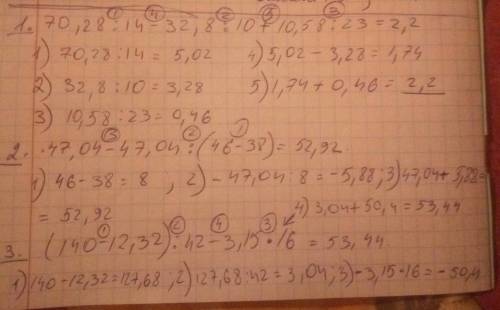 1. 70,28 : 14 - 32,8 : 10 + 10,58 : 23 = 2,2
1) 70,28 : 14 = 5,02 4) 5,02 - 3,28 = 1,74
2) 32,8 : 10 = 3,28 5) 1,74 + 0,46 = 2,2
3) 10,58 : 23 = 0,46
2. 47,04 - 47,04 : (46 - 38) = 52,92
1) 46 - 38 = 8, 2) - 47,04 : 8 = -5,88; 3) 47,04 + 5,88 =
= 52,92 4) 3,04 + 50,4 = 53,44
3. (140 - 12,32) : 42 - 3,15 · 16 = 53,44
1) 140 - 12,32 = 127,68; 2) 127,68 : 42 = 3,04; 3) - 3,15 · 16 = - 50,4